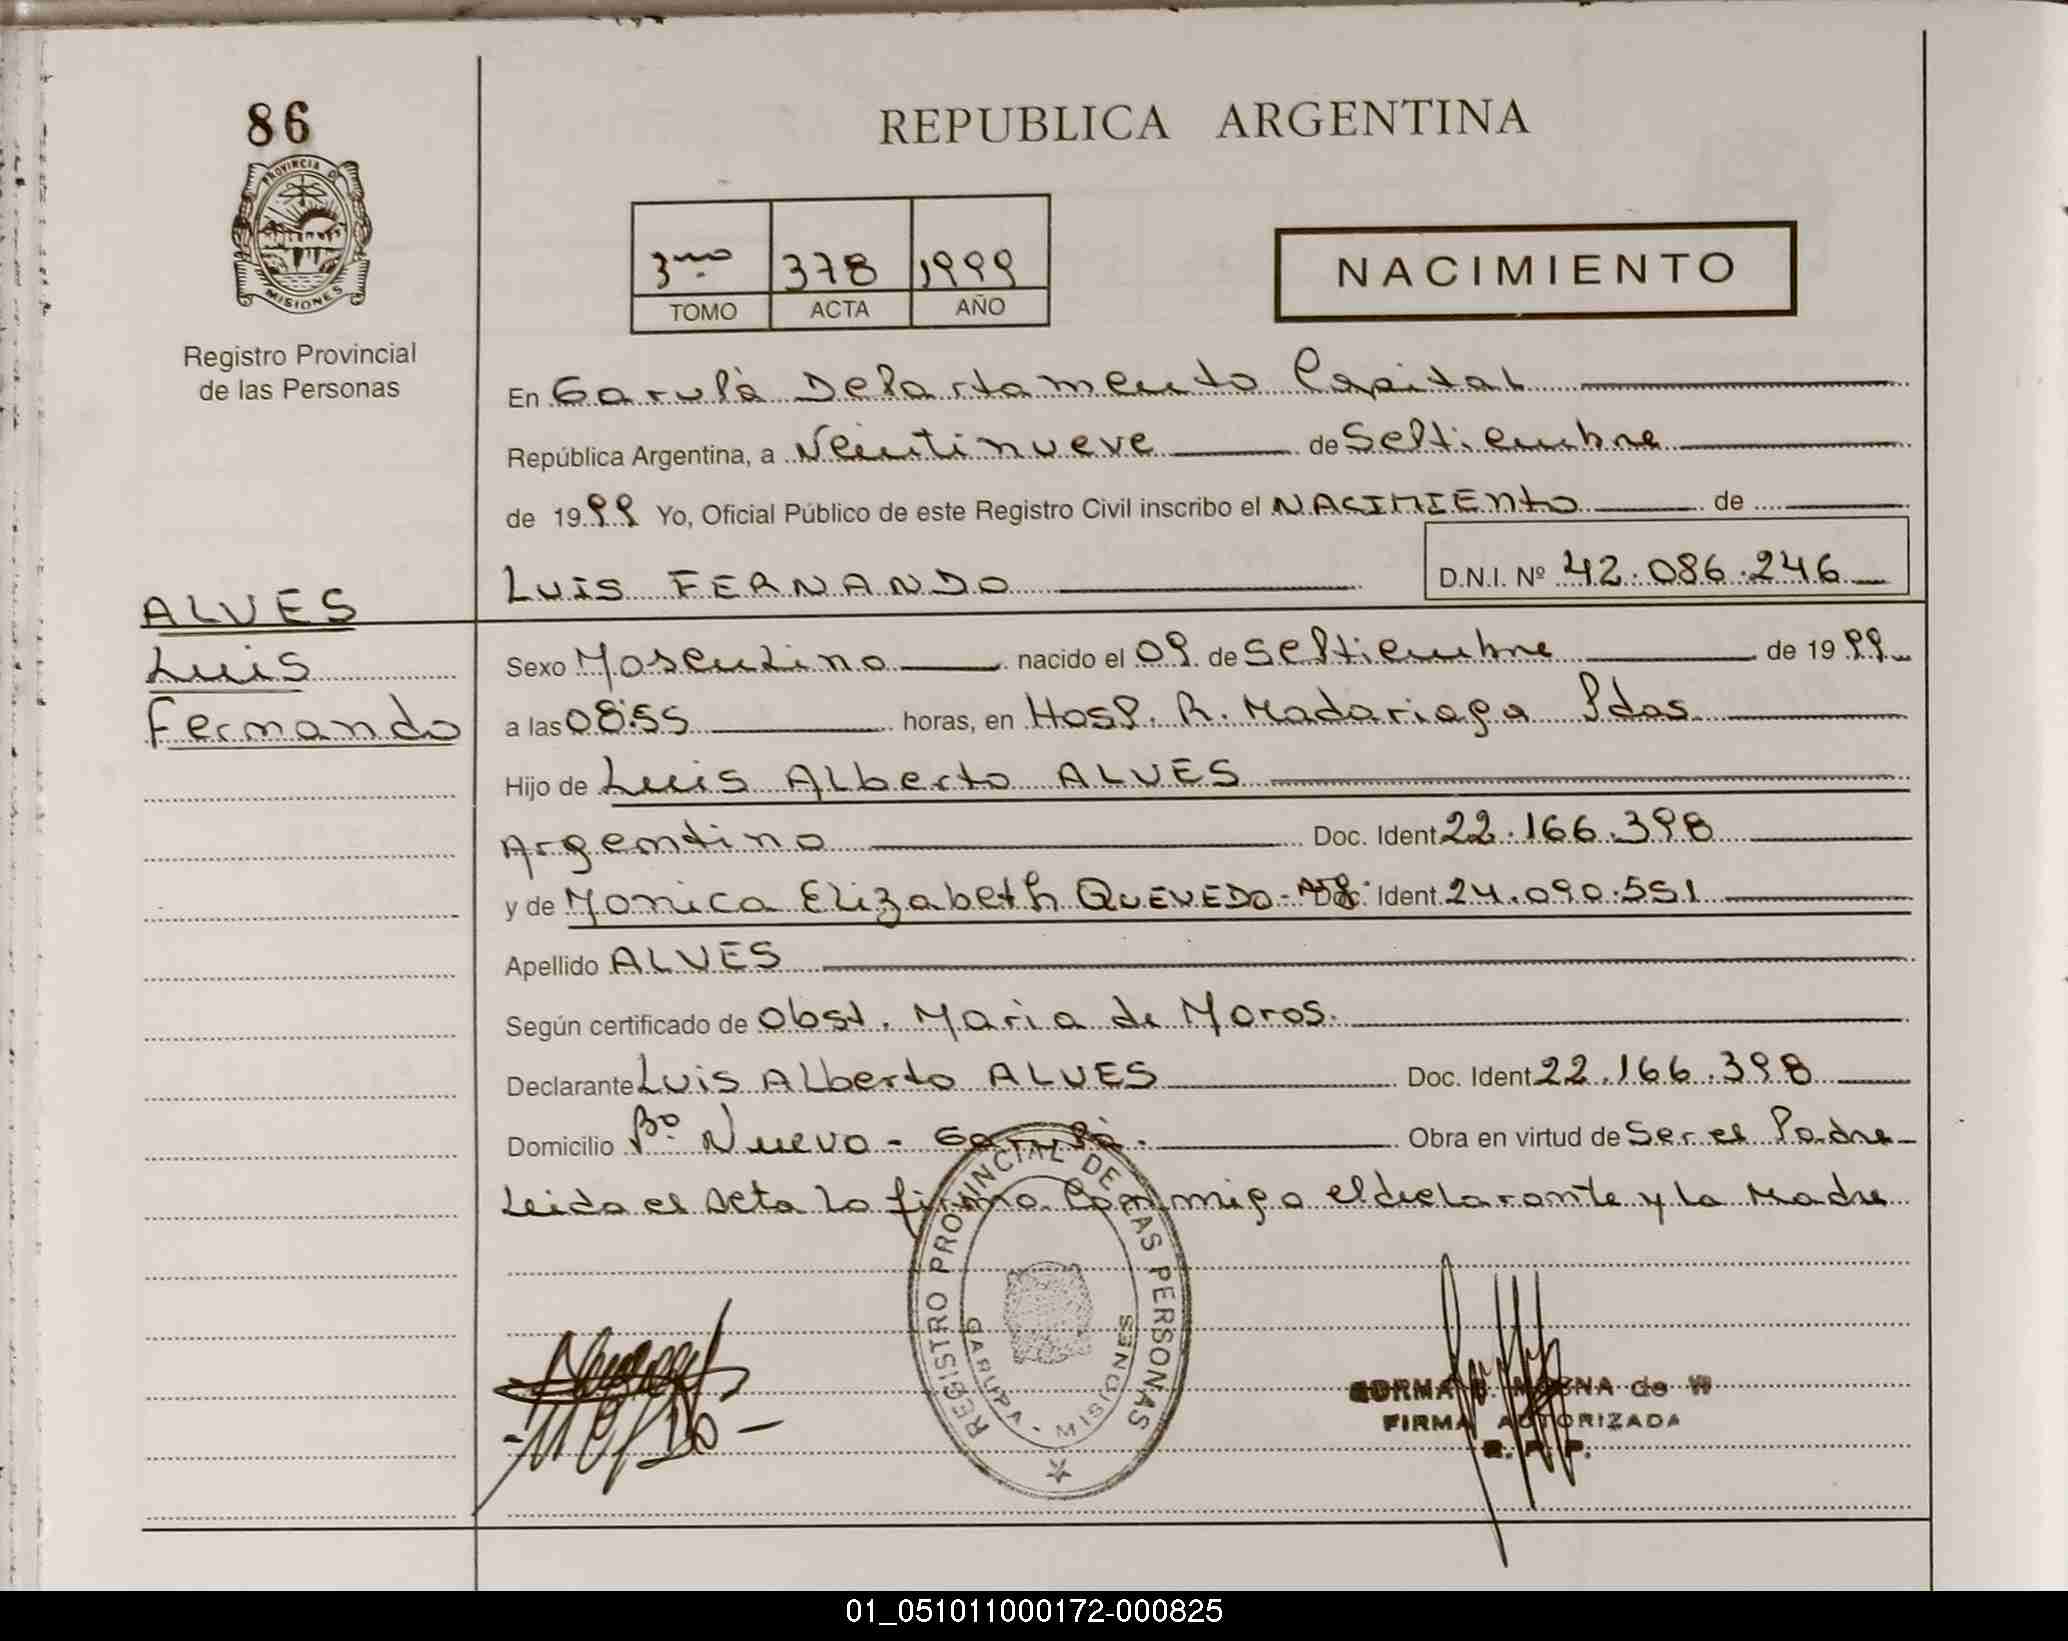 86
REPUBLICA ARGENTINA
PROVINCIA DE
MISIONES
Registro Provincial
de las Personas
3ro 378 1999
TOMO ACTA AÑO
NACIMIENTO
En Garupà Departamento Capital
República Argentina, a Veintinueve de Septiembre
de 1999 Yo, Oficial Público de este Registro Civil inscribo el NACIMIENto de
LUIS FERNANDO D.N.I. Nº 42.086.246
ALVES
Luis
Fernando
Sexo Masculino nacido el 09 de Septiembre de 1999
a las 08:55 horas, en Hosp. R. Madariaga Pdas
Hijo de Luis Alberto ALVES
Argentino Doc. Ident 22.166.398
y de Monica Elizabeth QUEVEDO - Doc. Ident. 24.090.551
Apellido ALVES
Según certificado de Obst. Maria de Moros.
Declarante Luis Alberto ALVES Doc. Ident 22.166.398
Domicilio Bº Nuevo - Garupà. Obra en virtud de Ser el Padre
Leida el Acta la firma conmigo el declarante y la Madre
REGISTRO PROVINCIAL DE LAS PERSONAS
GARUPA - MISIONES
de W
FIRMA AUTORIZADA
R. P. P.
01_051011000172-000825